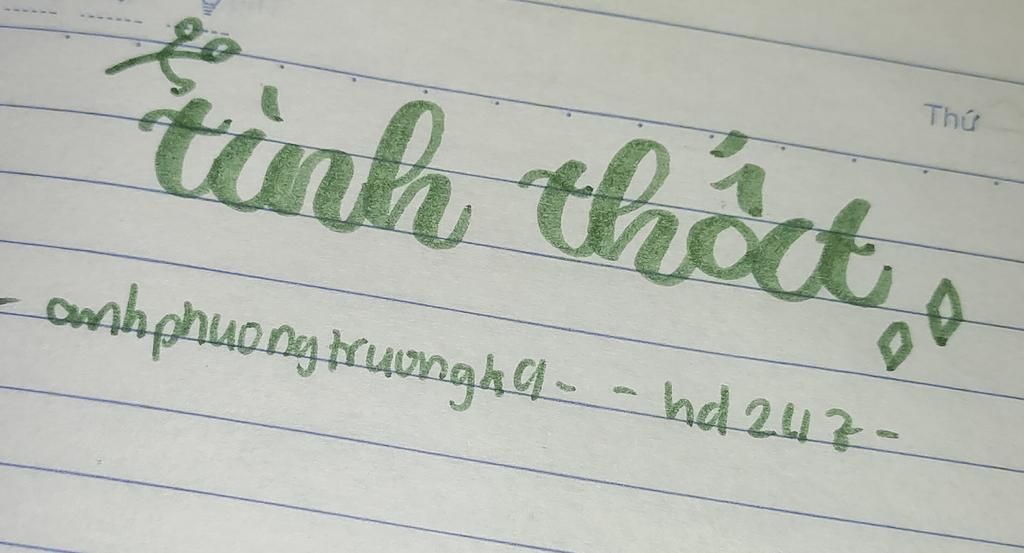 Thứ
tình thốt
- anhphuongtruongh9 - - hd247 -